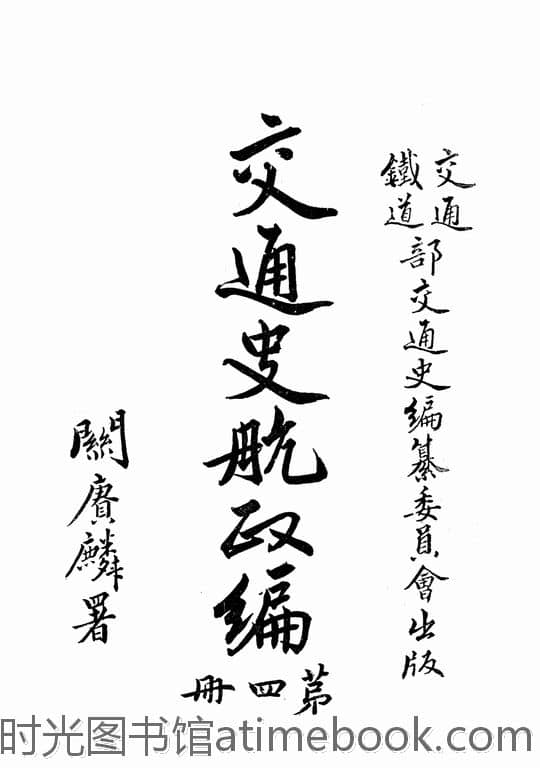 交通
鐵道
部交通史編纂委員會出版
交通史航政編
第四册
關賡麟署
时光图书馆atimebook.com